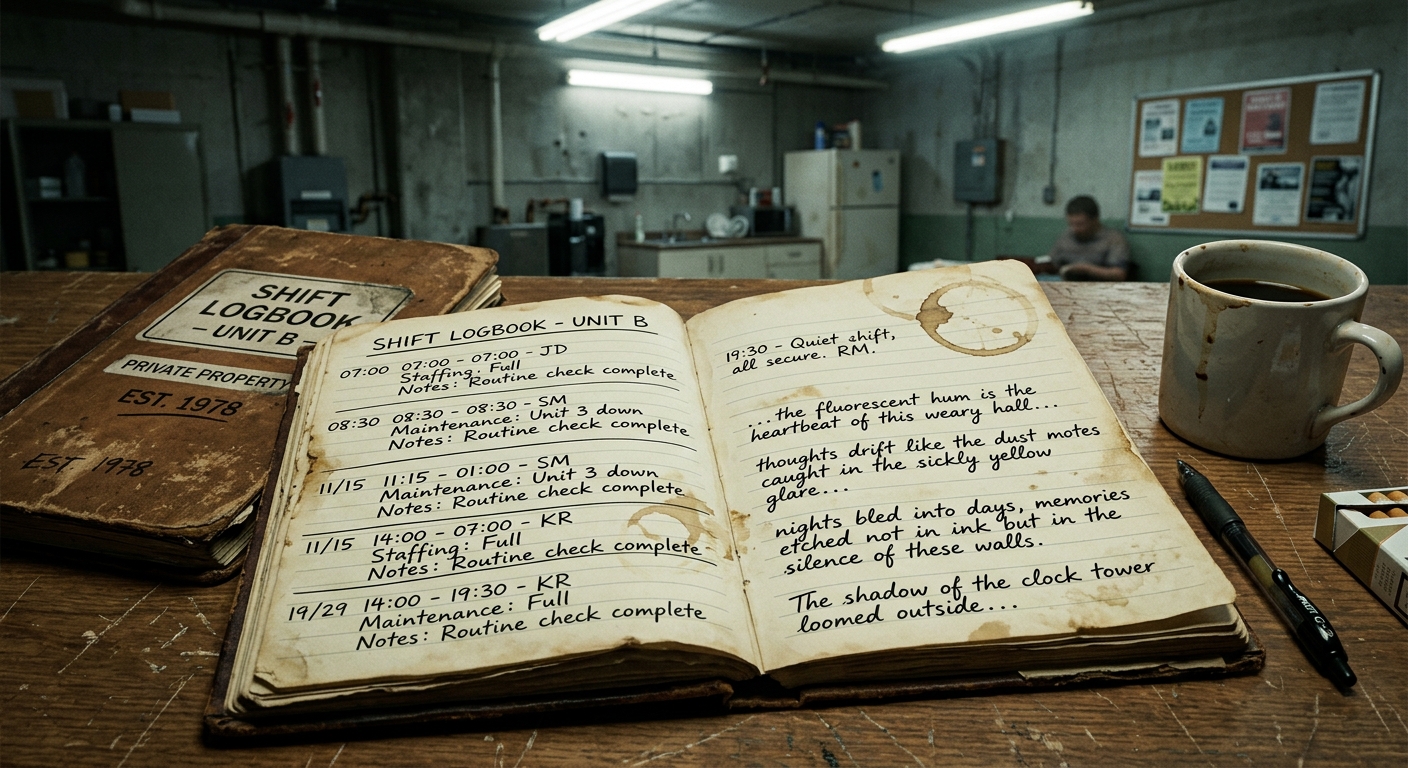 SHIFT
LOGBOOK
– UNIT B
PRIVATE PROPERTY
EST. 1978
EST. 1978
SHIFT LOGBOOK – UNIT B
07:00 07:00 – 07:00 – JD
Staffing: Full
Notes: Routine check complete
08:30 08:30 – 08:30 – SM
Maintenance: Unit 3 down
Notes: Routine check complete
11/15 11:15 – 01:00 – SM
Maintenance: Unit 3 down
Notes: Routine check complete
11/15 14:00 – 07:00 – KR
Staffing: Full
Notes: Routine check complete
19/29 14:00 – 19:30 – KR
Maintenance: Full
Notes: Routine check complete
19:30 – Quiet shift,
all secure. RM.
...the fluorescent hum is the
heartbeat of this weary hall...
thoughts drift like the dust motes
caught in the sickly yellow
glare...
nights bled into days, memories
etched not in ink but in the
silence of these walls.
The shadow of the clock tower
loomed outside...